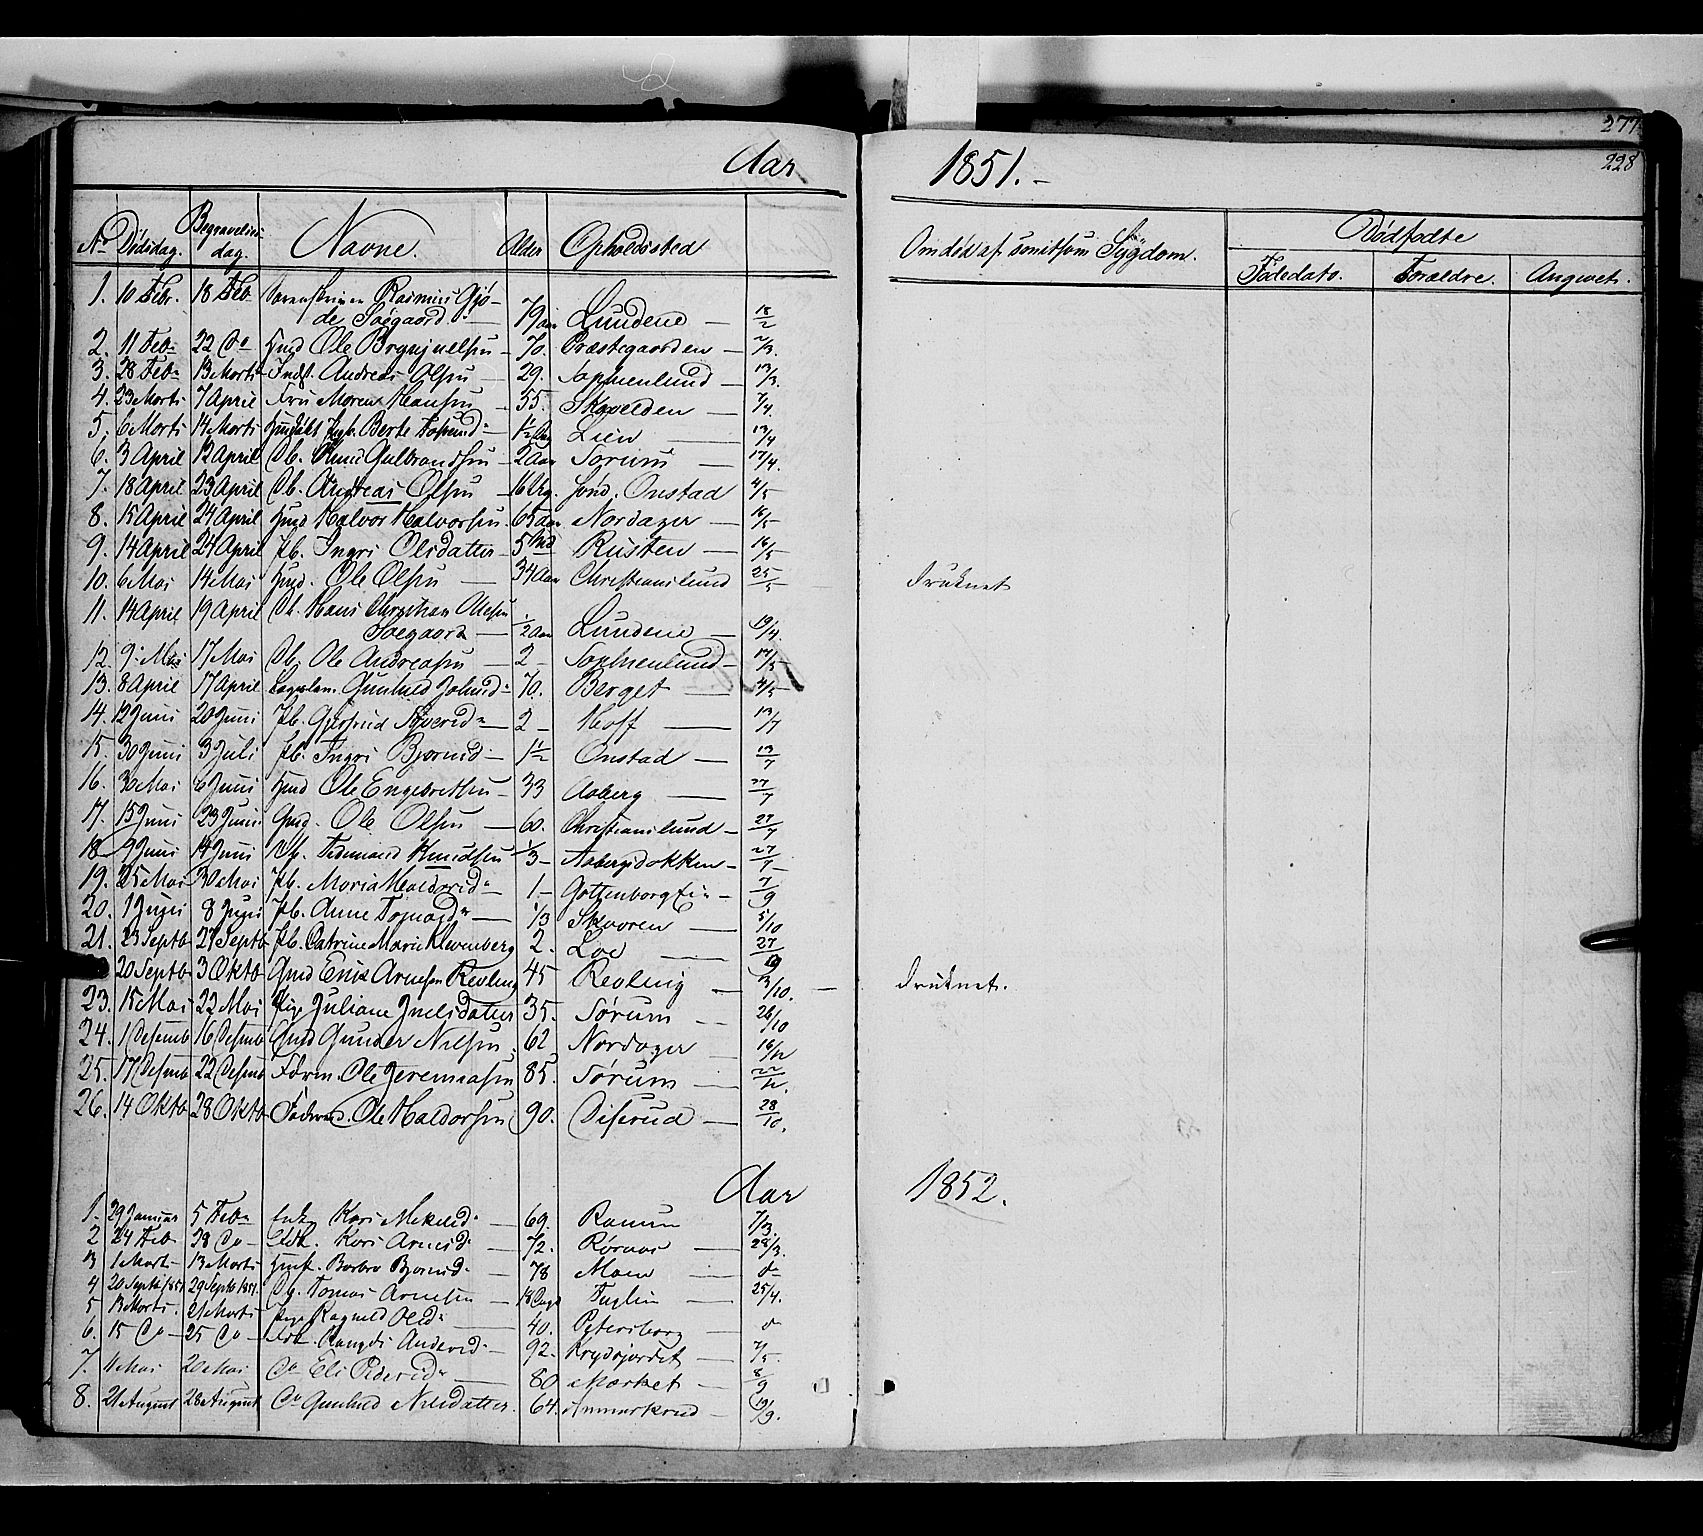 277
228
Aar 1851.-
No Dødsdag. Begravelses dag. Navne. Alder Opholdssted Om død af smitsom Sygdom. Dødfødte
Fødedato. Forældre. Angivet.
1. 10 Febr. 18 Feb Rasmus Gjø-
de Soegaard - 79 aar Lundene - 18/2
2. 11 Feb 22 Do Huusmd Ole - 70. Præstegaarden - 2/3.
3. 28 Feb 13 Marts Indst. Andreas Olsen 29. Sophienlund - 13/3.
4. 23 Marts 7 April Fru Maren Hansen - 55. 7/4.
5. 6 Marts 14 Marts Berte 1 1/2 Dag Lien - 13/4
6. 3 April 12 April Db. Gulbrandsen - 2 Aar Sørum - 17/4.
7. 18 April 23 April Db. Andreas Olsen - 16 Onstad 4/5
8. 15 April 24 April Halvor Halvorsen. 65 aar Nordager - 16/5
9. 14 April 24 April Pb. Ingri Olsdatter - 5 Rusten - 16/5
10. 6 Mai 14 Mai Ole Olsen - 34 Aar Christianslund 25/5 druknet
11. 14 April 19 April Db. Hans Christian
Soegaard - 1/2 aar Lundene - 19/4.
12. 9 Mai 17 Mai Db. Ole Andreasen - 2 - Sophienlund - 17/5 -
13. 8 April 17 April Gunhild Johnsd. 70. Berget - 4/5
14. 12 Juni 20 Juni Pb. Gjertrud Siverid - 2 - Hoff - 13/7
15. 30 Juni 3 Juli Pb. Ingri Bjørnsd - 1 1/2 Onstad - 13/7
16. 30 Mai 6 Juni Ole Engebretsen - 33 Aaberg - 27/7
17. 15 Juni 23 Juni. Ole Olsen - 60. Christianslund - 27/7
18 9 Juni 14 Juni Knudsen 1/3 - Aabergsdokken - 27/7 -
19. 25 Mai 30 Mai Pb. Maria Haldorsd - 1 - 7/9
20. 1 Juni 8 Juni Pb. Anne - 1/3 Skaaren - 5/10
21. 23 Septb 27 Septb Pb. Catrine Marie Klevenberg 2. Loe - 27/
20 Septb 3 Oktb Arnesen Revling 45 Revling - 3/10. - druknet.
23. 15 Mai 22 Mai Pige Juliane 35. Sørum - 26/10
24. 1 Desemb 16 Desemb Gunder Nilsen. 62 Nordager - 16/12
25. 17 Desemb 22 Desemb Ole Jeremiasen 85. Sørum - 22/12.
26. 14 Oktb 28 Oktb Ole Haldorsen 90. Diserud - 28/10.
Aar 1852.
1. 29 Januar 5 Feb Enke Kari - 69. 7/3.
2 24 Feb 28 Do - Kari Arnesd - 72. Rørnos - 28/3.
3 1 Mart - 13 Marts Barbro Bjørnsd - 78 Moen - do
4 20 Septb 1851 29 Septb 1851. Db. Tomas Arnesen - 18 Dage Fuglin - 25/4.
5 13 Marts. 21 Marts Pige Ragnild Olsd - 40. Petersborg - do
6. 15 Do - 25 Do - Andersd - 92. 2/5.
7. 11 Mai 20 Mai Do Eli Pedersd - 80 Market - 8/9
8. 21 August 28 August Do Gunhild Nilsdatter. 64. 19/9.